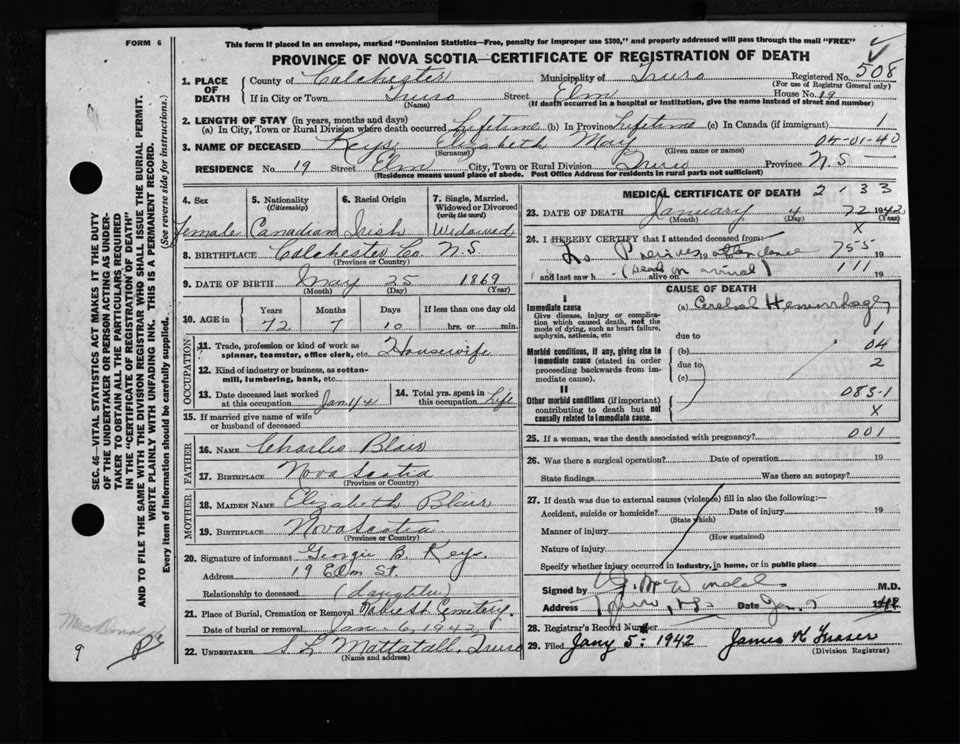 FORM 6
This form if placed in an envelope, marked "Dominion Statistics—Free, penalty for improper use $300," and properly addressed will pass through the mail "FREE"
PROVINCE OF NOVA SCOTIA—CERTIFICATE OF REGISTRATION OF DEATH
508
1. PLACE OF DEATH
County of Colchester Municipality of Truro Registered No.
(For use of Registrar General only)
If in City or Town Truro Street Elm House No. 19
(Name) (If death occurred in a hospital or institution, give the name instead of street and number)
2. LENGTH OF STAY (in years, months and days)
(a) In City, Town or Rural Division where death occurred Lifetime (b) In Province Lifetime (c) In Canada (if immigrant) 1
3. NAME OF DECEASED Keys Elizabeth May 04-01-40
(Surname) (Given name or names)
RESIDENCE No. 19 Street Elm City, Town or Rural Division Truro Province N.S
(Residence means usual place of abode. Post Office Address for residents in rural parts not sufficient)
4. Sex
Female
5. Nationality (Citizenship)
Canadian
6. Racial Origin
Irish
7. Single, Married, Widowed or Divorced (write the word)
Widowed
8. BIRTHPLACE Colchester Co. N.S
(Province or Country)
9. DATE OF BIRTH May 25 1869
(Month) (Day) (Year)
10. AGE in Years Months Days If less than one day old
72 7 10 hrs. or min.
OCCUPATION
11. Trade, profession or kind of work as spinner, teamster, office clerk, etc. Housewife
12. Kind of industry or business, as cotton-mill, lumbering, bank, etc.
13. Date deceased last worked at this occupation Jan 1/42
14. Total yrs. spent in this occupation Life
15. If married give name of wife or husband of deceased
FATHER
16. NAME Charles Blair
17. BIRTHPLACE Nova Scotia
(Province or Country)
MOTHER
18. MAIDEN NAME Elizabeth Blair
19. BIRTHPLACE Nova Scotia
(Province or Country)
20. Signature of informant Georgie B. Keys
Address 19 Elm St.
Relationship to deceased (daughter)
21. Place of Burial, Cremation or Removal Cemetery.
Date of burial or removal Jan 6, 1942
22. UNDERTAKER S L Mattatall, Truro
(Name and address)
MEDICAL CERTIFICATE OF DEATH 2133
23. DATE OF DEATH January 4 72 1942
(Month) (Day) (Year)
X
24. I HEREBY CERTIFY that I attended deceased from:
No Previous attendance 755
19
and last saw h alive on (Dead on arrival) 111 19
CAUSE OF DEATH
I
Immediate cause
Give disease, injury or complication which caused death, not the mode of dying, such as heart failure, asphyxia, asthenia, etc
(a) Cerebral Hemorrhage
due to 1
Morbid conditions, if any, giving rise to immediate cause (stated in order proceeding backwards from immediate cause).
(b) 04
due to 2
(c)
II
Other morbid conditions (if important) contributing to death but not causally related to immediate cause.
083-1
X
25. If a woman, was the death associated with pregnancy? 001
26. Was there a surgical operation? Date of operation 19
State findings Was there an autopsy?
27. If death was due to external causes (violence) fill in also the following:—
Accident, suicide or homicide? Date of injury 19
(State which)
Manner of injury
(How sustained)
Nature of injury
Specify whether injury occurred in industry, in home, or in public place
Signed by M.D.
Address Truro, N.S. Date Jan. 5 1942
28. Registrar's Record Number
29. Filed Jany 5: 1942 James K Fraser
(Division Registrar)
SEC. 46—VITAL STATISTICS ACT MAKES IT THE DUTY
OF THE UNDERTAKER OR PERSON ACTING AS UNDERTAKER TO OBTAIN ALL THE PARTICULARS REQUIRED
IN THE "CERTIFICATE OF REGISTRATION OF DEATH"
AND TO FILE THE SAME WITH THE DIVISION REGISTRAR WHO SHALL ISSUE THE BURIAL PERMIT.
WRITE PLAINLY WITH UNFADING INK. THIS IS A PERMANENT RECORD.
Every item of information should be carefully supplied. (See reverse side for instructions.)
MacDonald
9